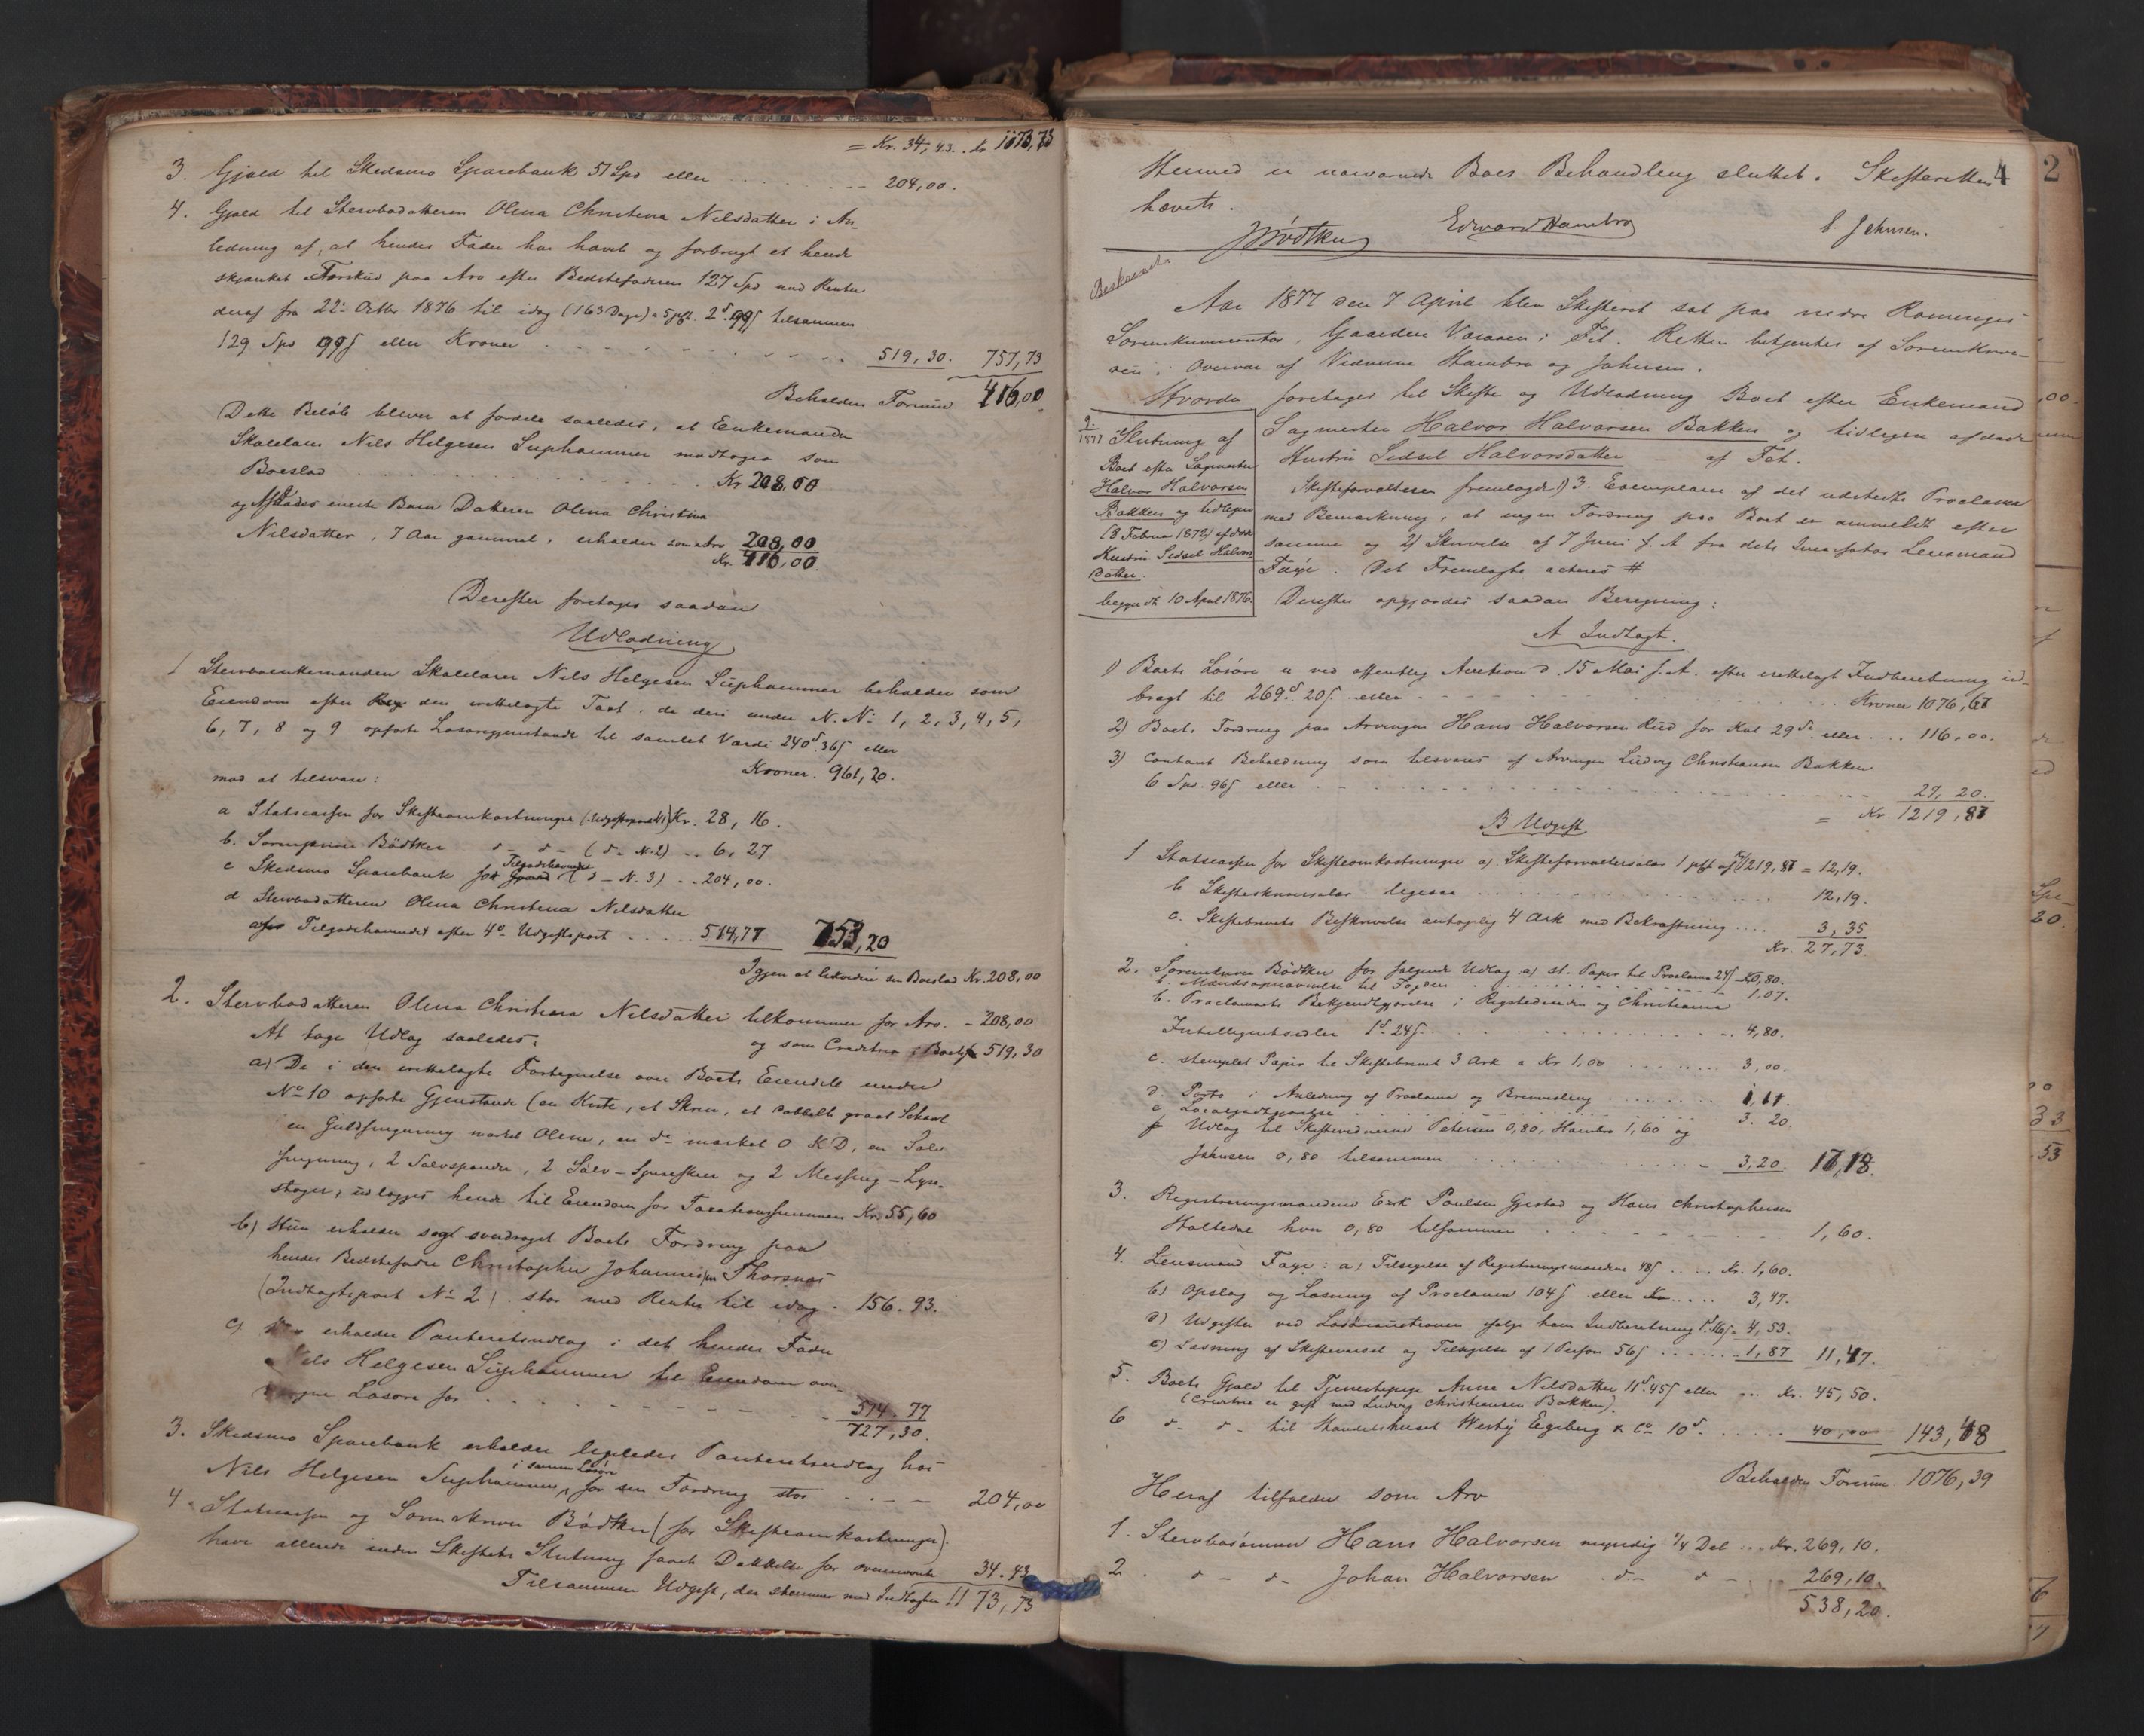 = Kr. 34,43. Kr 1173,73
3. Gjæld til Skedsmo Sparebank 51 Spd eller 204,00.
4. Gjæld til Stervbodatteren Olena Christina Nilsdatter i An-
ledning af, at hendes Fader har hævet og forbrugt et hende
skjænket Forskud paa Arv efter Bedstefaderen 127 Spd med Renter
deraf fra 22de Octbr 1876 til idag (163 Dage) a 5 pct. 2 d. 99 s tilsammen
129 Spd 99 s eller Kroner 519,30. 757,73
Beholden Formue 416,00
Dette Beløb bliver at fordele saaledes, at Enkemanden
Skolelærer Nils Helgesen Suphammer modtager som
Boeslod Kr 208,00
og Afdødes eneste Barn Datteren Olena Christina
Nilsdatter, 7 Aar gammel, erholder som Arv 208,00
Kr. 416,00.
Derefter foretages saadan
Udlodning
1 Stervboenkemanden Skolelærer Nils Helgesen Suphammer beholder som
Eiendom efter den irettelagte Taxt, de deri under N. No 1, 2, 3, 4, 5,
6, 7, 8 og 9 opførte Løsøregjenstande til samlet Værdi 240 d. 36 s eller
Kroner. 961,20.
mod at tilsvare:
a Statscassen for Skifteomkostninger (Udgiftspost N 1) Kr. 28,16.
b. Sorenskriver Bødtker d- d- (d- N. 2) 6,27
c Skedsmo Sparebank for Tilgodehavende (d- N. 3) 204,00.
d Stervbodatteren Olena Christina Nilsdatter
Tilgodehavende efter 4de Udgiftspost 514,77 753,20
Igjen at beholde som Boeslod Kr. 208,00
2. Stervbodatteren Olena Christina Nilsdatter tilkommer for Arv. - 208,00
og som Creditrix i Boet 519,30
At tage Udlæg saaledes:
a) De i den irettelagte Fortegnelse over Boets Eiendele under
No 10 opførte Gjenstande (en Kiste, et Skrin, et dobbelt graat Schawl
en Guldfingerring mærket Olene, en do mærket O K D, en Sølv
fingerring, 2 Sølvspænder, 2 Sølv-Spiseskeer og 2 Messing-Lyse-
stager, udlægges hende til Eiendom for Taxationssummen Kr. 55,60
b) Hun erholder Boets Fordring paa
hendes Bedstefader Christopher Johannesen Thorsnæs
(Indtægtspost No 2), stor med Renter til idag. 156. 93.
c) erholder Panteretsudlæg i det hendes Fader
Nils Helgesen Suphammer til Eiendom over-
Løsøre for 514. 77
727,30.
3. Skedsmo Sparebank erholder ligeledes Panteretsudlæg hos
Nils Helgesen Suphammer, i samme Løsøre for sin Fordring stor 204,00
4. Statscassen og Sorenskriver Bødtker (for Skifteomkostninger)
have allerede inden Skiftets Slutning faaet Dækkelse for ovennævnte 34. 43
Tilsammen Udgift, der stemmer med Indtægten 1173,73
4
2
Hermed er nærværende Boes Behandling sluttet. Skifteretten
hævet.
Bødtker Edvard Hambro C. Johnsen.
Beskrevet
Aar 1877 den 7 April blev Skifteret sat paa nedre Romeriges
Sorenskrivercontor, Gaarden Varaaen i Fet. Retten betjentes af Sorenskrive-
ren i Overvær af Vidnerne Hambro og Johnsen.
Hvorda foretages til Skifte og Udlodning Boet efter Enkemand
Sagmester Halvor Halvorsen Bakken og tidligere afdøde
Hustru Sidsel Halvorsdatter - af Fet.
9/1877 Slutning af
Boet efter Sagmester
Halvor Halvorsen
Bakken og tidligere
(8 Februar 1872) afdøde
Hustru Sidsel Halvors-
datter.
begyndt 10 April 1876.
Skifteforvalteren fremlagde 1) 3. Exemplarer af det udstedte Proclama
med Bemærkning, at ingen Fordring paa Boet er anmeldt efter
samme og 2) Skrivelse af 7 Juni f. A fra dets Incassator Lensmand
Faye. Det Fremlagte acteres #
Derefter opgjordes saadan Beregning:
A Indtægt.
1) Boets Løsøre er ved offentlig Auction d. 15 Mai f. A. efter irettelagt Indberetning ud-
bragt til 269 d. 20 s. eller Kroner 1076,67
2) Boets Fordring paa Arvingen Hans Halvorsen Rud for Kul 29 d. eller 116,00.
3) Contant Beholdning som tilsvares af Arvingen Ludvig Christiansen Bakken
6 Spd. 96 s eller 27,20.
= Kr 1219,87
B Udgift
1 Statscassen for Skifteomkostninger a) Skifteforvaltersalær 1 pct af 1219,87 = 12,19.
b Skifteskriversalær ligesaa 12,19.
c. Skiftebrevets Beskrivelse antagelig 4 Ark med Bekræftning 3,35
Kr. 27,73.
2. Sorenskriver Bødtker for følgende Udlæg a) st. Papir til Proclama 24 s 0,80.
b. Mandsopnævnelse til Fogden 1,07.
b. Proclamaets Bekjendtgjørelse i Rigstidenden og Christiania
Intelligentsedler 1 d. 24 s. 4,80.
c. stemplet Papir til Skiftebrevet 3 Ark a Kr 1,00 3,00.
d. Porto i Anledning af Proclama og Brevvexling 1,11.
e Localgodtgjørelse 3. 20.
f Udlæg til Skiftevidnerne Petersen 0,80, Hambro 1,60 og
Johnsen 0,80 tilsammen 3,20. 17,18.
3. Registreringsmændene Erik Poulsen Gjestad og Hans Christophersen
Holtedal hver 0,80 tilsammen 1,60.
4. Lensmand Faye: a) Tilsigelse af Registreringsmændene 48 s Kr. 1,60.
b) Opslag og Læsning af Proclamaet 104 s eller 3,47.
d) Udgifter ved Løsøreauctionen ifølge hans Indberetning 1 d. 16 s 4,53.
e) Læsning af Skiftevarsel og Tilsigelse af 1 Person 56 s 1,87 11,47.
5. Boets Gjæld til Tjenestepige Anne Nilsdatter 11 d. 45 s eller Kr. 45,50.
(Creditrix er gift med Ludvig Christiansen Bakken).
6 d- d- til Handelshuset Westye Egeberg & Co 10 d. 40,00 143,48
Beholden Formue 1076,39
Heraf tilfalder som Arv
1. Stervbosønnen Hans Halvorsen myndig 1/4 Del Kr. 269,10.
2. d- d- Johan Halvorsen d- d- 269,10.
538,20.